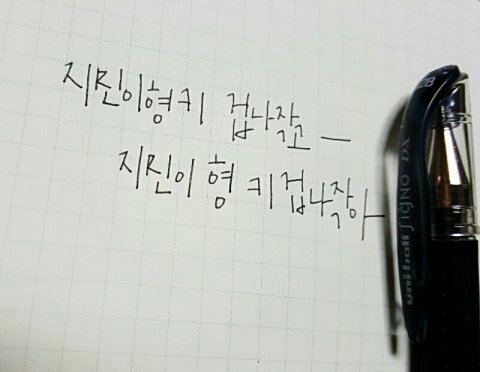 지진이형키 겁나작고ㅡ
지진이 형 키겁나작아
uni-ball SIGNO DX